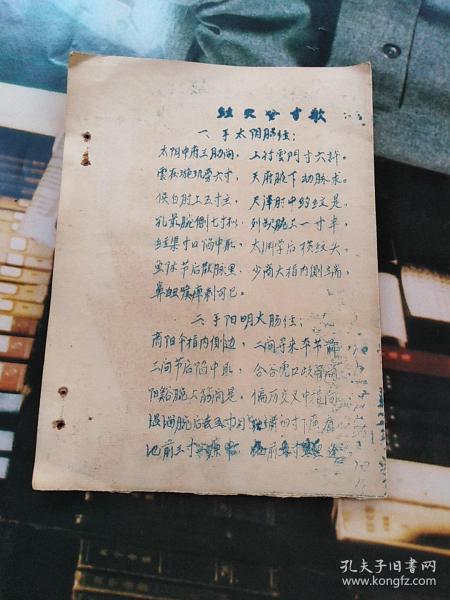 经穴分寸歌
一、手太阴肺经：
太阴中府三肋间，上行云门寸六许。
云在璇玑旁六寸，天府腋下动脉求。
侠白肘上五寸主，尺泽肘中约纹是。
孔最腕侧七寸拟，列缺腕上一寸半。
经渠寸口陷中取，太渊掌后横纹头。
鱼际节后散脉里，少商大指内侧端。
鼻衄喉痹刺可已。
二、手阳明大肠经：
商阳食指内侧边，二间寻来本节前
三间节后陷中取，合谷虎口歧骨间
阳谿腕上筋间是，偏历交叉中指间
温溜腕后去五寸，池前四寸下廉
池前三寸 池前二寸 逢
孔夫子旧书网
www.kongfz.com